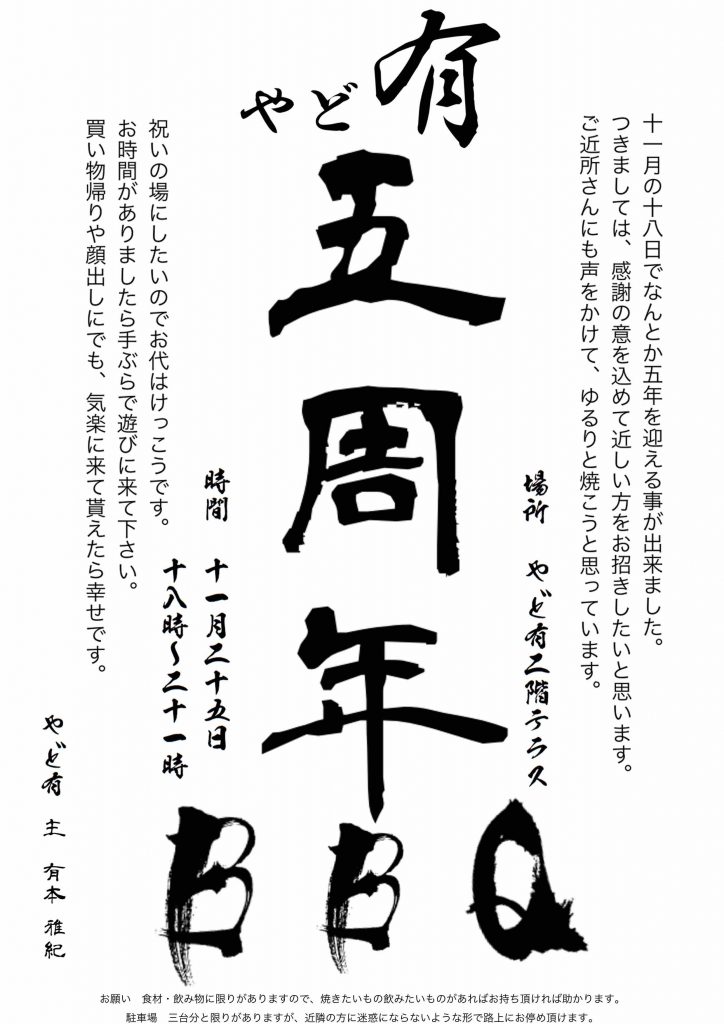 やど有
五周年
BBQ
十一月の十八日でなんとか五年を迎える事が出来ました。
つきましては、感謝の意を込めて近しい方をお招きしたいと思います。
ご近所さんにも声をかけて、ゆるりと焼こうと思っています。
場所　やど有二階テラス
時間　十一月二十五日
十八時〜二十一時
祝いの場にしたいのでお代はけっこうです。
お時間がありましたら手ぶらで遊びに来て下さい。
買い物帰りや顔出しにでも、気楽に来て貰えたら幸せです。
やど有　主　有本　雅紀
お願い　食材・飲み物に限りがありますので、焼きたいもの飲みたいものがあればお持ち頂ければ助かります。
駐車場　三台分と限りがありますが、近隣の方に迷惑にならないような形で路上にお停め頂けます。